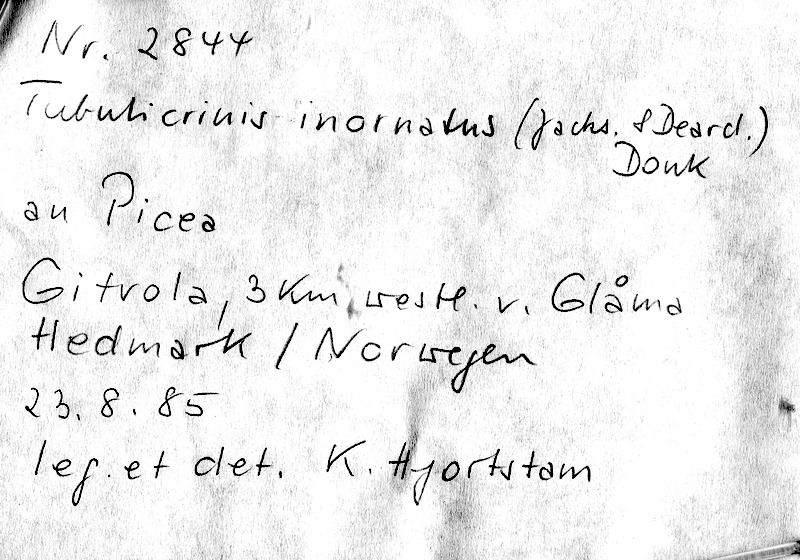 Nr. 2844
Tubulicrinis inornatus (Jacks. & Deard.)
Donk
an Picea
Gitvola, 3 Km westl. v. Glåma
Hedmark / Norwegen
23. 8. 85
leg. et det. K. Hjortstam